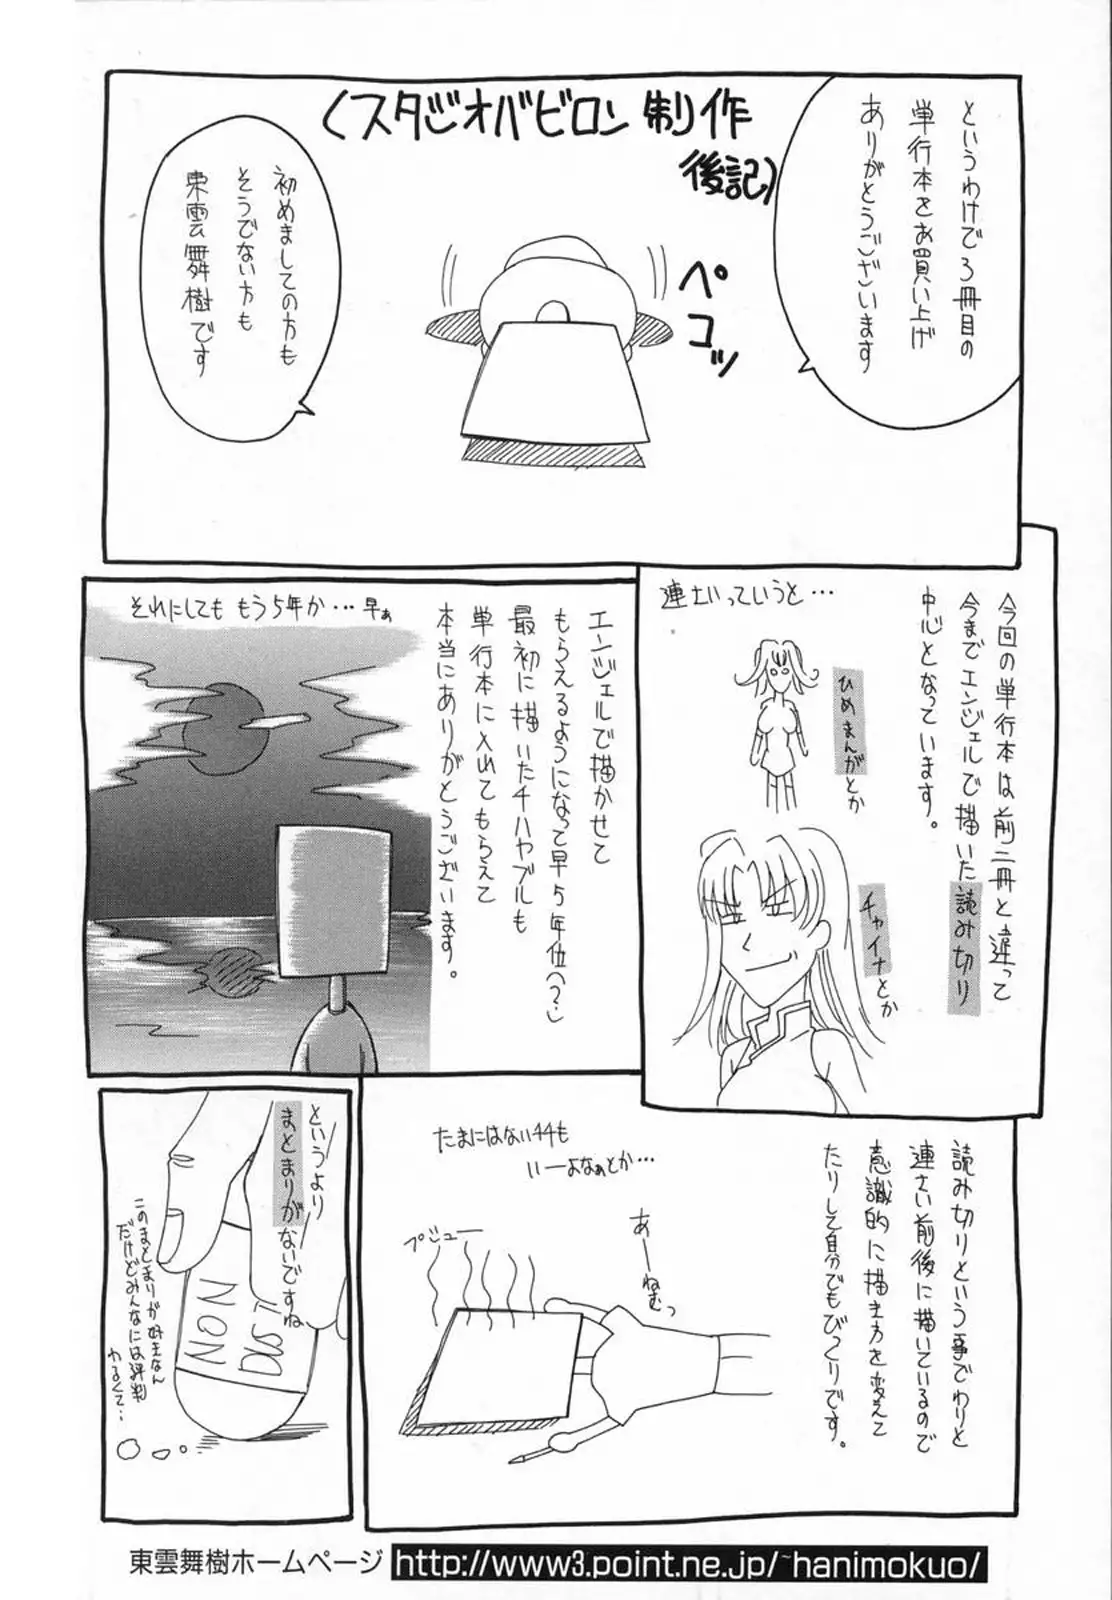 (スタジオバビロン制作
後記)
というわけで3冊目の
単行本をお買い上げ
ありがとうございます
ペコッ
初めましての方も
そうでない方も
東雲舞樹です
今回の単行本は前二冊と違って
今までエンジェルで描いた読み切り
中心となっています。
連さいっていうと…
ひめまんがとか
チャイナとか
エンジェルで描かせて
もらえるようになって早5年位(?)
最初に描いたチハヤブルも
単行本に入れてもらえて
本当にありがとうございます。
それにしても もう5年か…早ぁ
読み切りという事でわりと
連さい前後に描いているので
意識的に描き方を変えて
たりして自分でもびっくりです。
たまにはないチチも
いーよなぁとか…
あーねむっ
プジュー
というより
まとまりがないですね
このまとまりが好きなん
だけどみんなには評判
わるくて…
NON
DUST
NON
東雲舞樹ホームページ http://www3.point.ne.jp/~hanimokuo/